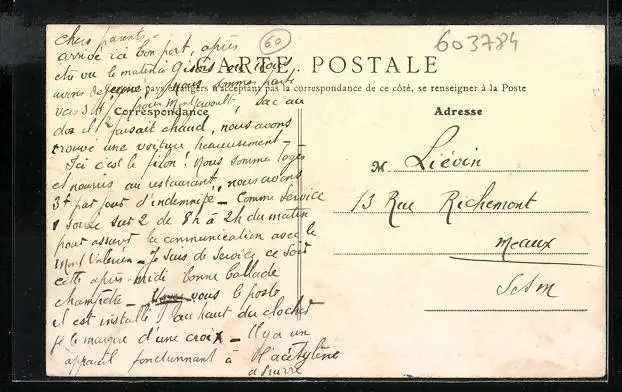 60
603784
CARTE POSTALE
pays étrangers n'acceptant pas la correspondance de ce côté, se renseigner à la Poste
Correspondance
Adresse
chers parents -
arrivé ici à bon port, après
été vu le matin à Gisors
avons déjeuné nous sommes partis
vers 3H pour Montjavoult, sac au
dos il faisait chaud, nous avons
trouvé une voiture heureusement -
Ici c'est le filon ! Nous somme logés
et nourris au restaurant, nous avons
3f par jour d'indemnité - Comme service
1 soirée sur 2 de 8h à 2h du matin
pour assurer la communication avec le
Mont Valérien - Je suis de service ce soir
cette après-midi bonne ballade
champêtre - vous le poste
il est installé au haut du clocher
je le marque d'une croix - Il y a un
appareil fonctionnant à l'acétylène
à suivre
M Liévin
13 Rue Richemont
Meaux
S et M